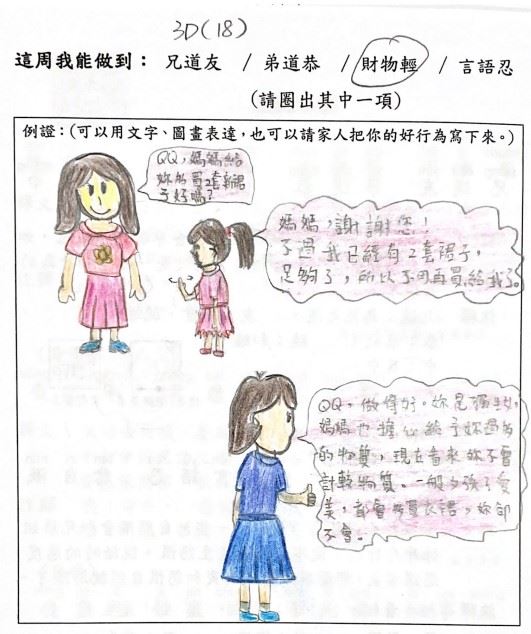 3D(18)
這周我能做到： 兄道友 / 弟道恭 / 財物輕 / 言語忍
(請圈出其中一項)
例證：(可以用文字、圖畫表達，也可以請家人把你的好行為寫下來。)
QQ，媽媽給
妳買2套新裙
子好嗎？
媽媽，謝謝您！
不過我已經有2套裙子，
足夠了，所以不用再買給我了。
QQ，做得好。妳是
媽媽也擔心給予妳過多
的物質，現在看來妳不會
計較物質。一般女孩子愛
美，都會買衣裙，妳卻
不會。